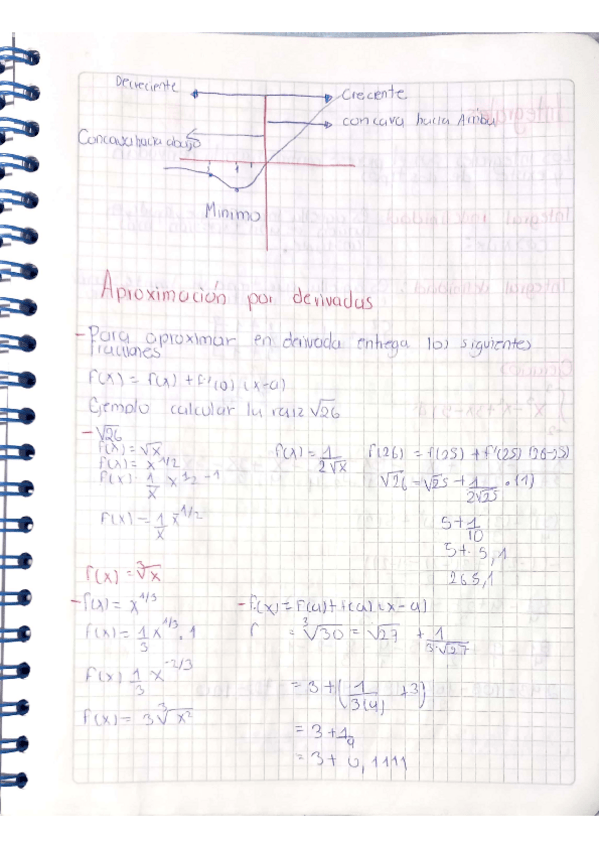 Decreciente
Crecente
concava hacia Arriba
Concava hacia abajo
2 1
Minimo
Aproximación por derivadas
- Para aproximar en derivada entrega los siguientes
fracciones
f(x) = f(a) + f'(a) (x-a)
Ejemplo calcular la raiz √26
- √26
f(x) = √x
f(x) = x^1/2
f(x) = 1/x x^1/2 - 1
f(x) = 1/x x^-1/2
f(x) = 1/2√x
f(26) = f(25) + f'(25) (26-25)
√26 = √25 + 1/2√25 · (1)
5 + 1/10
5 + 5,1
265,1
f(x) = ∛x
- f(x) = x^1/3
f(x) = 1/3 x^1/3 · 1
f(x) 1/3 x^-2/3
f(x) = 3∛x²
- f(x) = f(a) + f(a) (x-a)
f = ∛30 = √27 + 1/3·√27
= 3 + (1/3(9) + 3)
= 3 + 1/9
= 3 + 0,1111